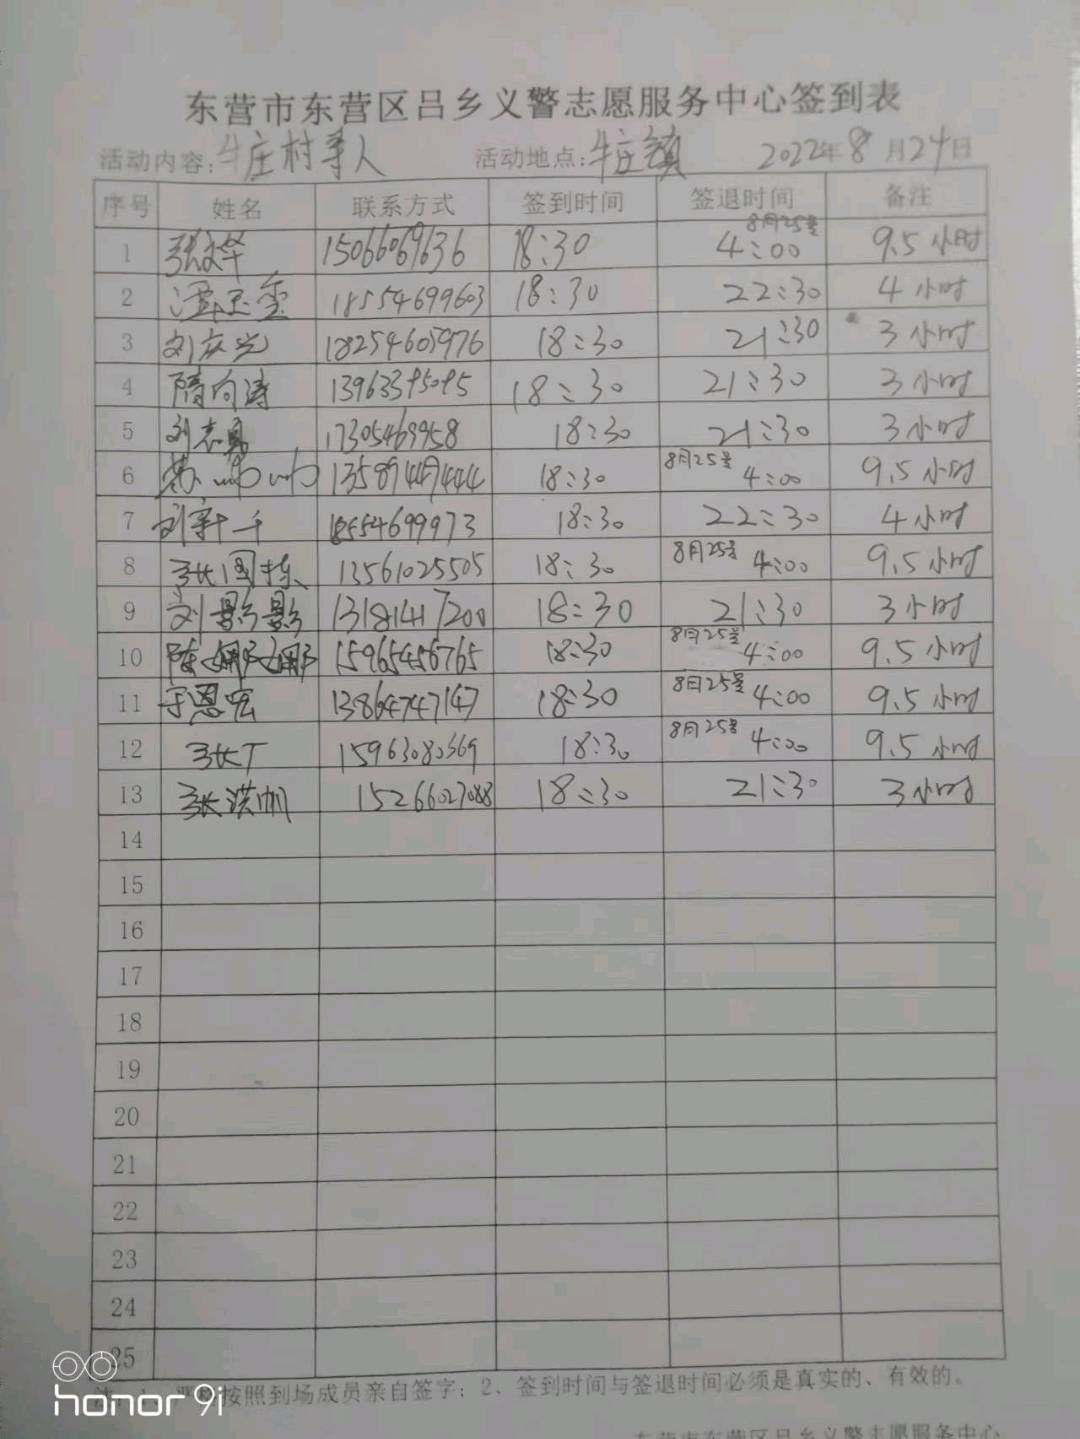 东营市东营区吕乡义警志愿服务中心签到表
活动内容: 牛庄村寻人 活动地点: 牛庄镇 2022年8月24日
序号 姓名 联系方式 签到时间 签退时间 备注
1 张文华 15066069636 18:30 8月25号 4:00 9.5小时
2 18554699603 18:30 22:30 4小时
3 刘庆光 18254605976 18:30 21:30 3小时
4 隋向涛 13963395095 18:30 21:30 3小时
5 刘志勇 17305469958 18:30 21:30 3小时
6 13589449444 18:30 8月25号 4:00 9.5小时
7 18554699973 18:30 22:30 4小时
8 张国栋 13561025505 18:30 8月25号 4:00 9.5小时
9 刘影影 13181417200 18:30 21:30 3小时
10 陈娜娜 15965456765 18:30 8月25号 4:00 9.5小时
11 于恩宏 13864747147 18:30 8月25号 4:00 9.5小时
12 张丁 15963080369 18:30 8月25号 4:00 9.5小时
13 张洪帆 15266027088 18:30 21:30 3小时
14
15
16
17
18
19
20
21
22
23
24
25
按照到场成员亲自签字; 2、签到时间与签退时间必须是真实的、有效的。
东营市东营区吕乡义警志愿服务中心
honor 9i